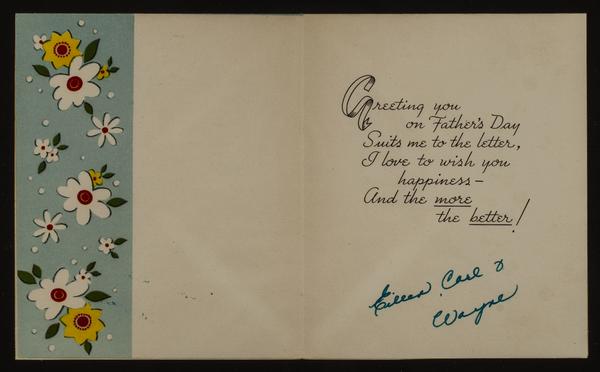 Greeting you
on Father's Day
Suits me to the letter,
I love to wish you
happiness—
And the more
the better!
Eileen, Carl &
Wayne